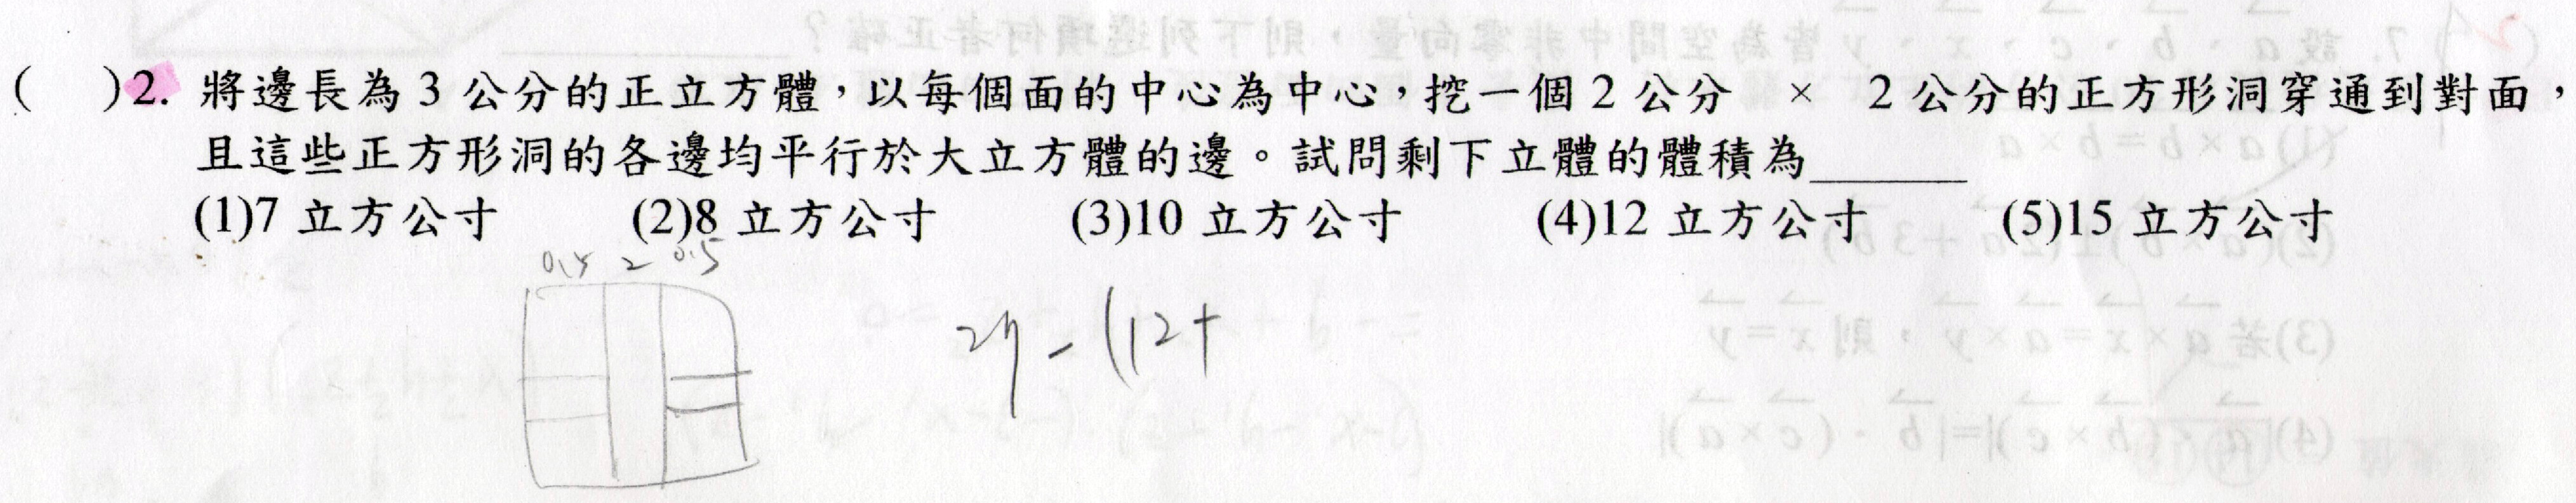 (　)2. 將邊長為 3 公分的正立方體，以每個面的中心為中心，挖一個 2 公分 × 2 公分的正方形洞穿通到對面，
且這些正方形洞的各邊均平行於大立方體的邊。試問剩下立體的體積為______
(1)7 立方公寸 (2)8 立方公寸 (3)10 立方公寸 (4)12 立方公寸 (5)15 立方公寸
0.5 2 0.5
27 - (12+